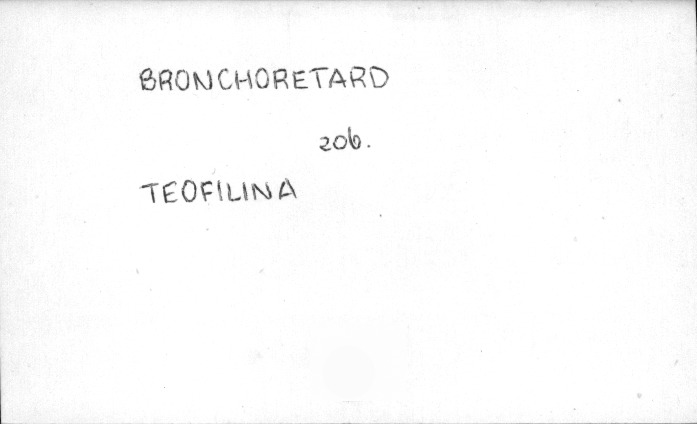 BRONCHORETARD
206.
TEOFILINA